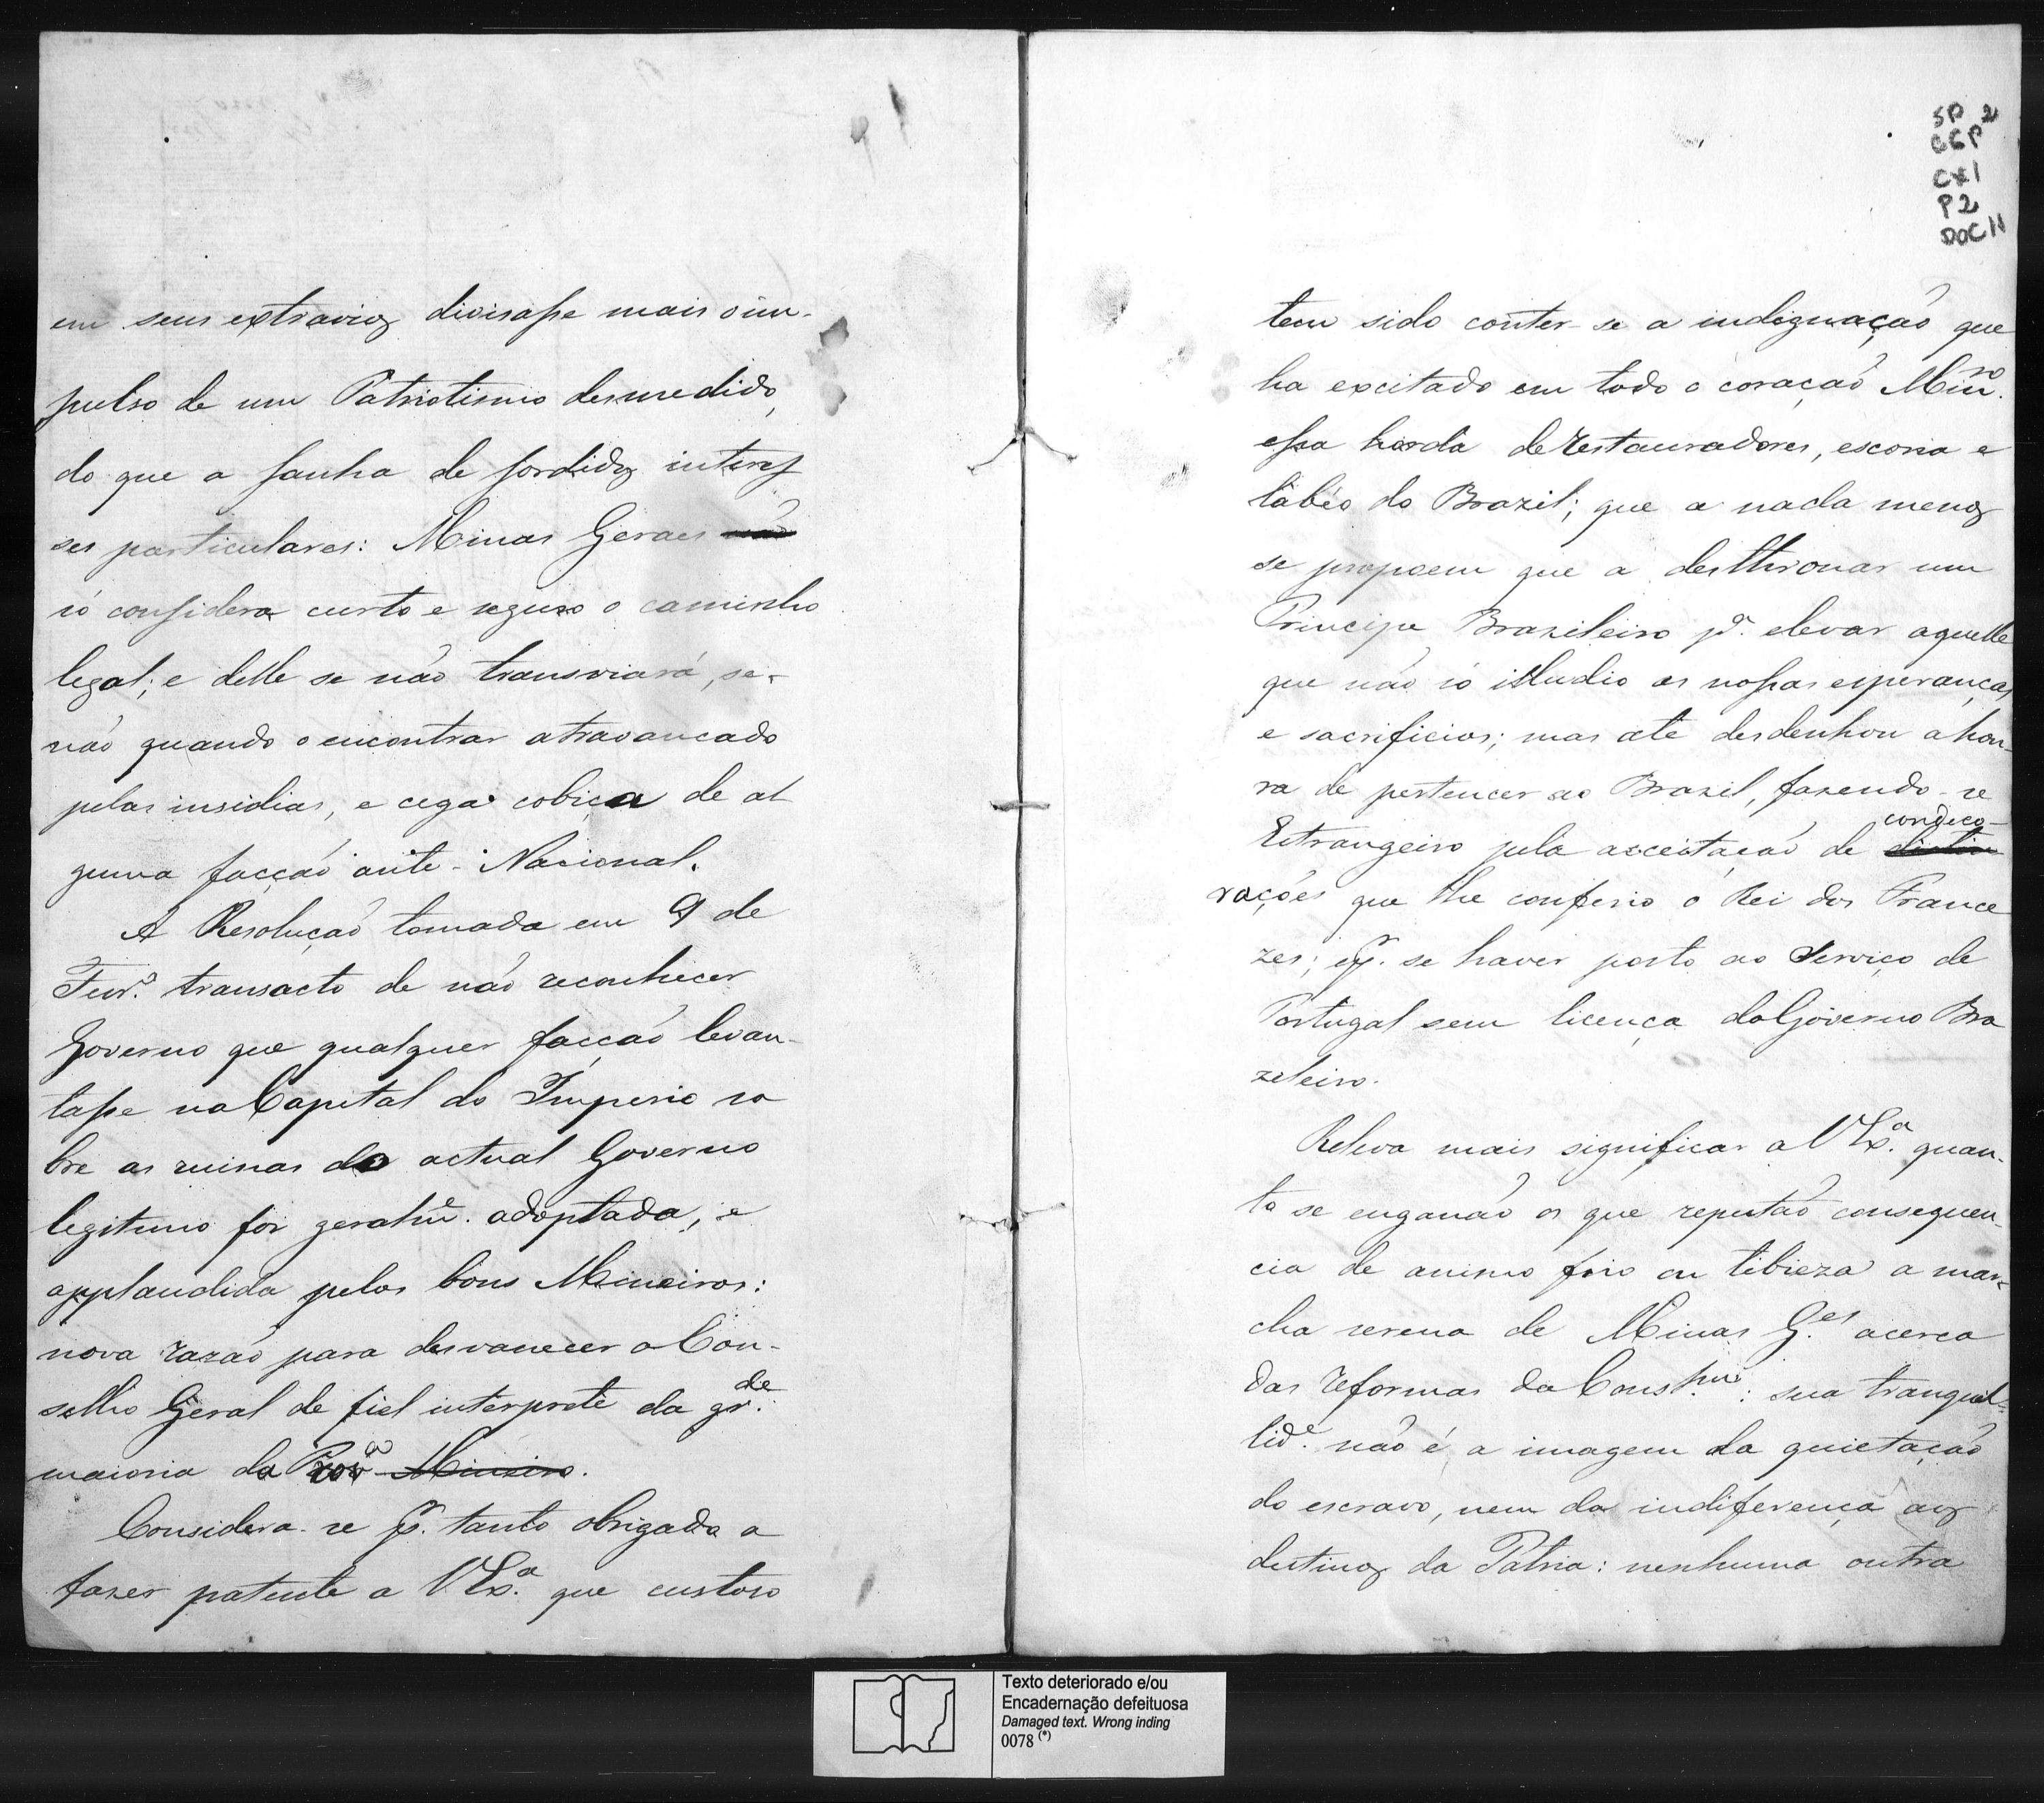 em seus extravios divisasse mais o im-
pulso de um Patriotismo desmedido,
do que a sanha de sordidos interes
ses particulares: Minas Geraes não
só considera curto e seguro o caminho
legal; e delle se não transviará, se-
não quando o encontrar atravancado
pelas insidias, e cega cobiça de al
guma facção anti-Nacional.
A Resolução tomada em 9 de
Fevr.º transacto de não reconhecer
Governo que qualquer facção levan-
tasse na Capital do Imperio so
bre as ruinas do actual Governo
legitimo foi geralmẽ. adoptada, e
applaudida pelos bons Mineiros:
nova razão para desvanecer o Con-
selho Geral de fiel interprete da gr.de
maioria da Prova Mineira.
Considera-se pr. tanto obrigada a
fazer patente a V Ex.a que custoso
SP 2
CGP
CX1
P2
DOC 11
tem sido conter-se a indignação que
ha excitado em todo o coração Min.ro
essa horda de restauradores, escoria e
labéo do Brazil; que a nada menos
se propoem que a desthronar um
Principe Brazileiro pa. elevar aquelle
que não só illudio as nossas esperanças
e sacrificios; mas até desdenhou a hon-
ra de pertencer ao Brazil, fazendo-se
Estrangeiro pela acceitação de distin condeco-
rações que lhe conferio o Rei dos France
zes; e pr. se haver posto ao Serviço de
Portugal sem licença do Governo Bra
zileiro.
Releva mais significar a V Ex.a quan-
to se enganão os que reputão consequen-
cia de animo frio ou tibieza a mar-
cha serena de Minas G.es acerca
das reformas da Const.: sua tranquil-
lid.e não é a imagem da quietação
do escravo, nem da indiferença aos
destinos da Patria: nenhuma outra
Texto deteriorado e/ou
Encadernação defeituosa
Damaged text. Wrong inding
0078 (*)